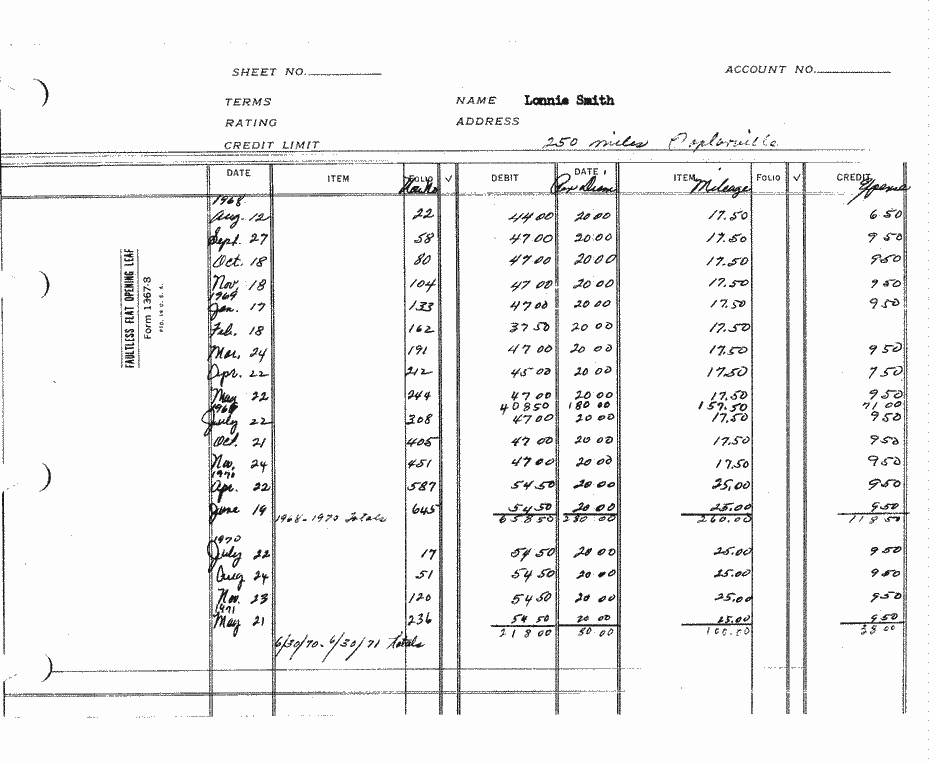 SHEET NO.
ACCOUNT NO.
TERMS NAME Lonnie Smith
RATING ADDRESS
CREDIT LIMIT 250 miles Poplarville
DATE ITEM FOLIO ✓ DEBIT DATE ITEM FOLIO ✓ CREDIT
Per Diem Mileage Expense
1968
Aug. 12 22 44 00 20 00 17.50 6 50
Sept. 27 58 47 00 20 00 17.50 9 50
Oct. 18 80 47 00 20 00 17.50 9 50
Nov. 18 104 47 00 20 00 17.50 9 50
1969
Jan. 17 133 47 00 20 00 17.50 9 50
Feb. 18 162 37 50 20 00 17.50
Mar. 24 191 47 00 20 00 17.50 9 50
Apr. 22 212 45 00 20 00 17.50 7 50
May 22 244 47 00 20 00 17.50 9 50
408 50 180 00 157.50 71 00
1969
July 22 308 47 00 20 00 17.50 9 50
Oct. 21 405 47 00 20 00 17.50 9 50
Nov. 24 451 47 00 20 00 17.50 9 50
1970
Apr. 22 587 54 50 20 00 25.00 9 50
June 19 645 54 50 20 00 25.00 9 50
1968-1970 Totals 658 50 280 00 260.00 118 50
1970
July 22 17 54 50 20 00 25.00 9 50
Aug 24 51 54 50 20 00 25.00 9 50
Nov. 23 120 54 50 20 00 25.00 9 50
1971
May 21 236 54 50 20 00 25.00 9 50
218 00 80.00 100.00 38 00
6/30/70-6/30/71 Totals
FAULTLESS FLAT OPENING LEAF
Form 1367-8
PTD. IN U.S.A.